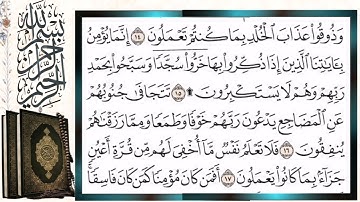 بسم الله الرحمن الرحيم
وَذُوقُوا۟ عَذَابَ ٱلْخُلْدِ بِمَا كُنتُمْ تَعْمَلُونَ ١٤ إِنَّمَا يُؤْمِنُ
بِـَٔايَـٰتِنَا ٱلَّذِينَ إِذَا ذُكِّرُوا۟ بِهَا خَرُّوا۟ سُجَّدًا وَسَبَّحُوا۟ بِحَمْدِ
رَبِّهِمْ وَهُمْ لَا يَسْتَكْبِرُونَ ۩ ١٥ تَتَجَافَىٰ جُنُوبُهُمْ
عَنِ ٱلْمَضَاجِعِ يَدْعُونَ رَبَّهُمْ خَوْفًا وَطَمَعًا وَمِمَّا رَزَقْنَـٰهُمْ
يُنفِقُونَ ١٦ فَلَا تَعْلَمُ نَفْسٌ مَّآ أُخْفِىَ لَهُم مِّن قُرَّةِ أَعْيُنٍ
جَزَآءًۢ بِمَا كَانُوا۟ يَعْمَلُونَ ١٧ أَفَمَن كَانَ مُؤْمِنًا كَمَن كَانَ فَاسِقًا